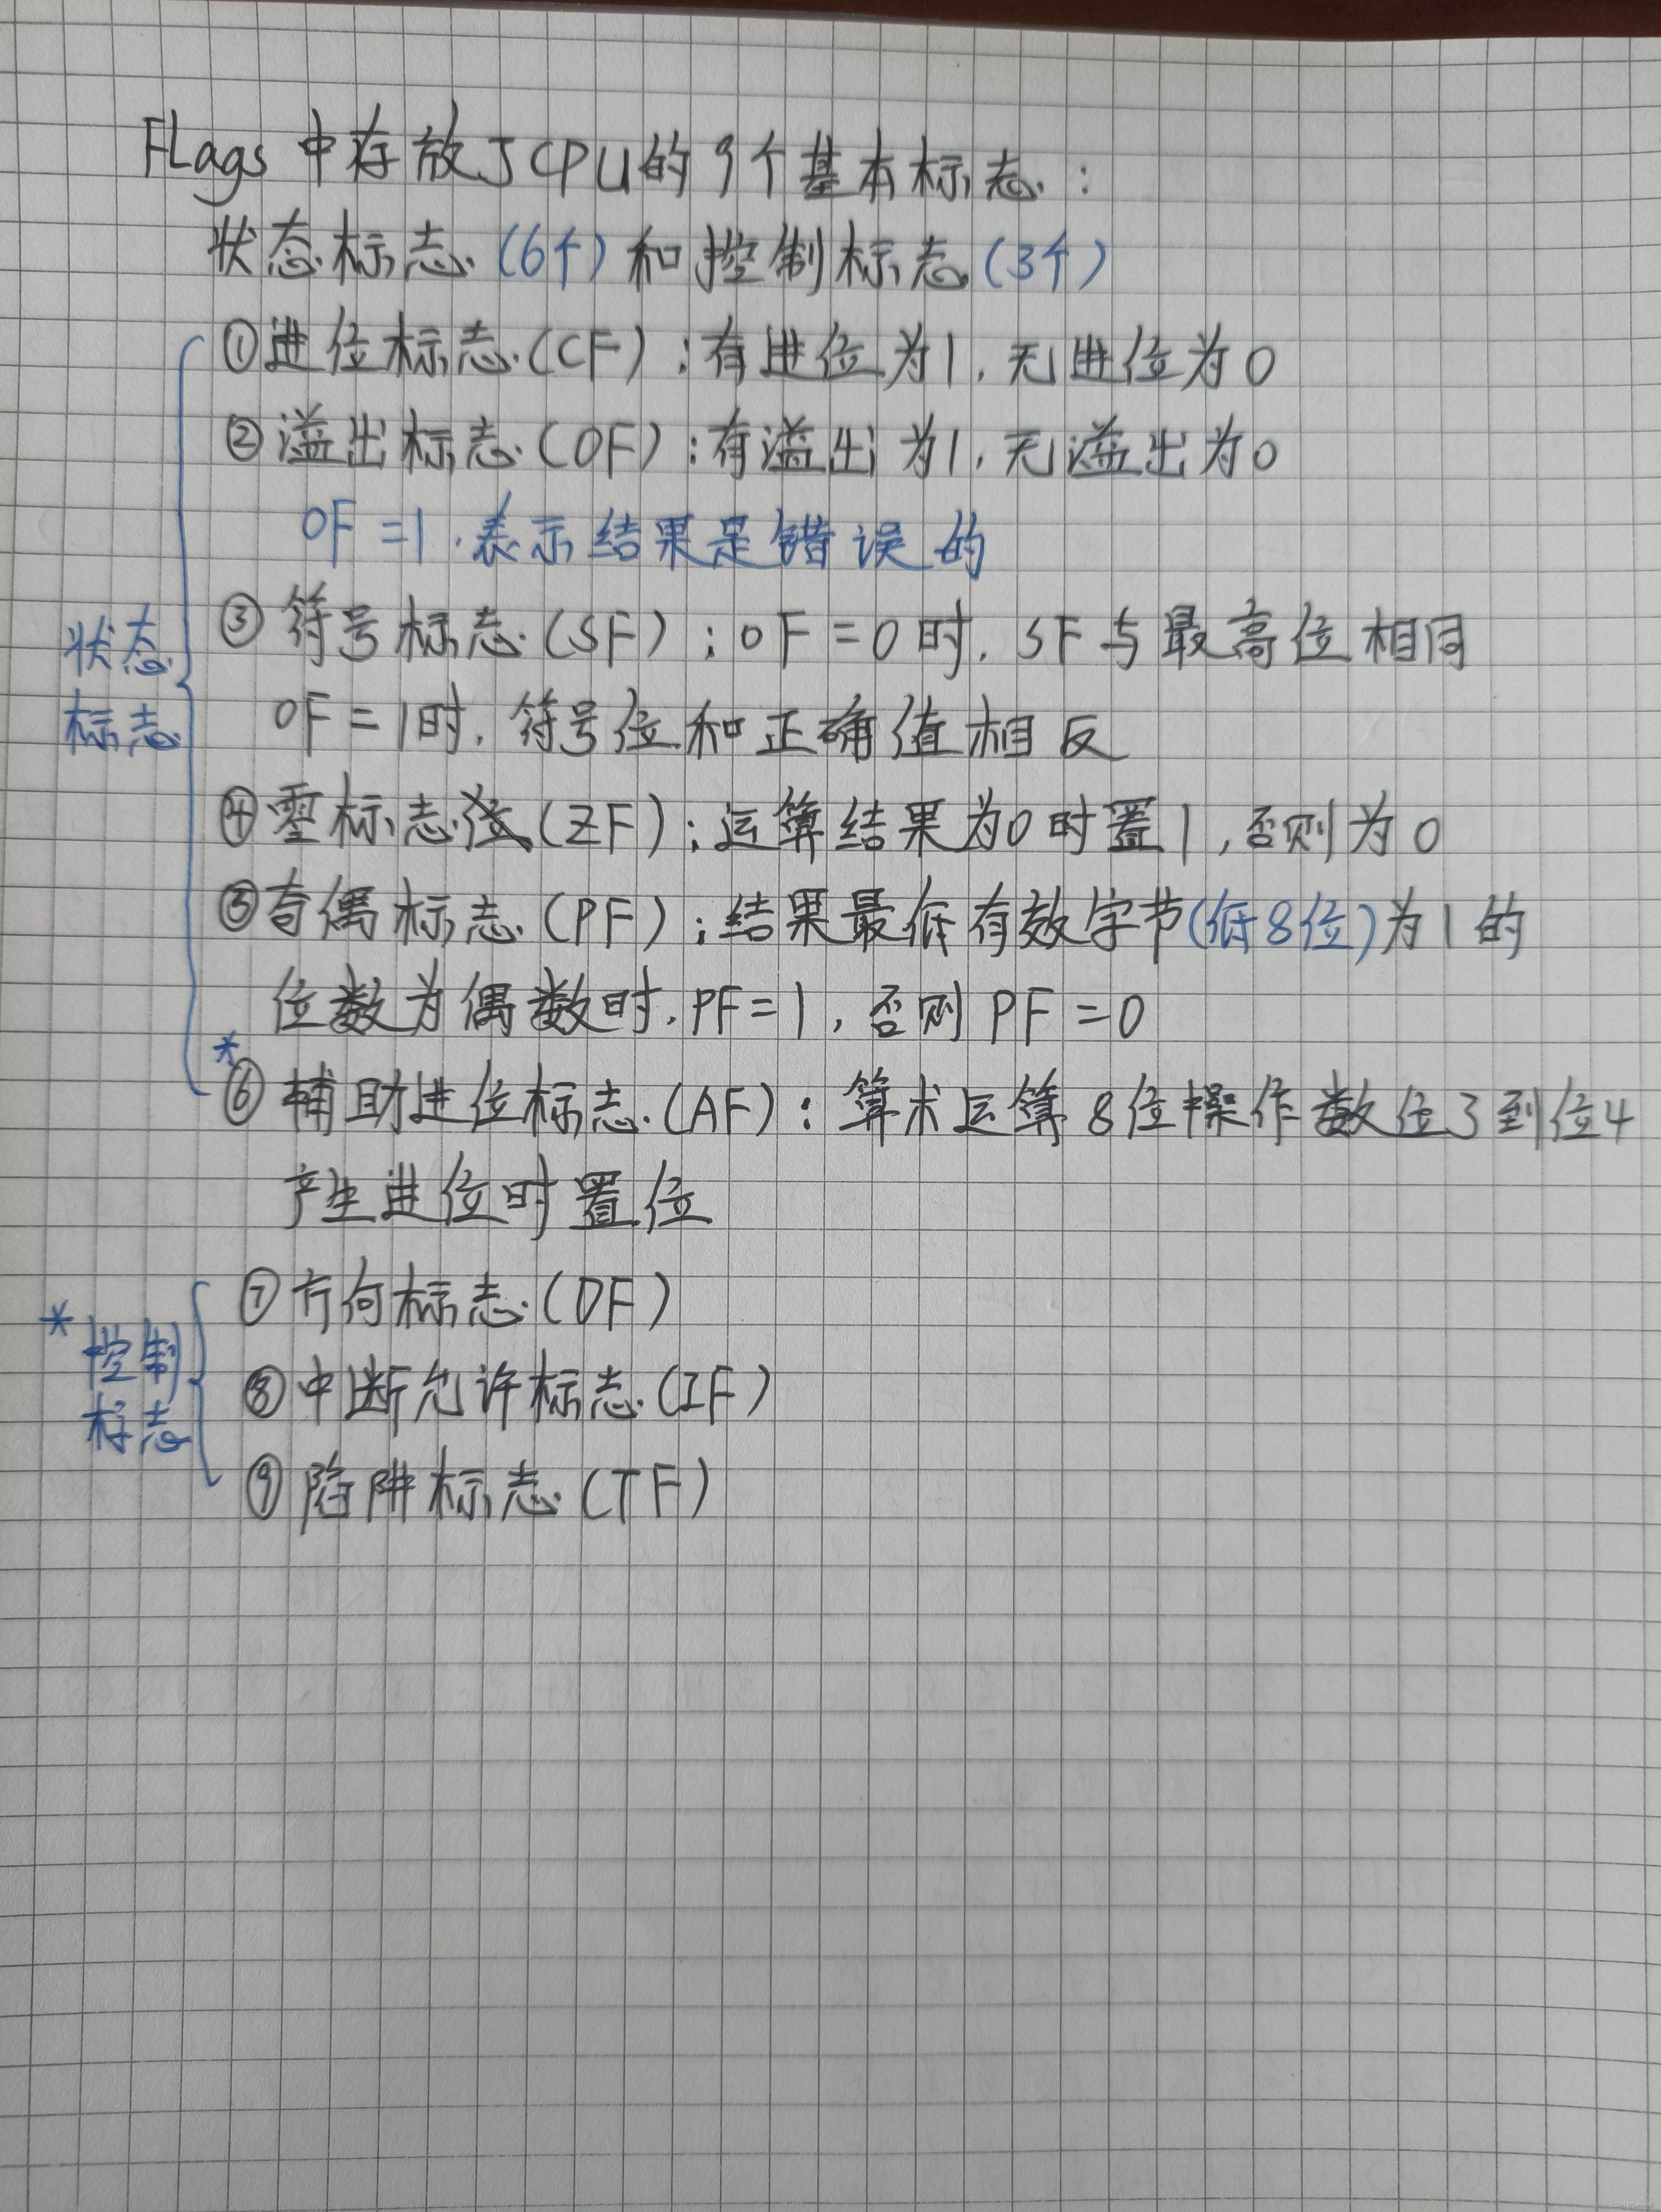 FLags 中存放了CPU的9个基本标志:
状态标志(6个)和控制标志(3个)
①进位标志(CF):有进位为1,无进位为0
②溢出标志(OF):有溢出为1,无溢出为0
OF=1,表示结果是错误的
③符号标志(SF):OF=0时,SF与最高位相同
OF=1时,符号位和正确值相反
④零标志(ZF):运算结果为0时置1,否则为0
⑤奇偶标志(PF):结果最低有效字节(低8位)为1的
位数为偶数时,PF=1,否则PF=0
*⑥辅助进位标志(AF):算术运算8位操作数位3到位4
产生进位时置位
状态
标志
⑦方向标志(DF)
⑧中断允许标志(IF)
⑨陷阱标志(TF)
*控制
标志